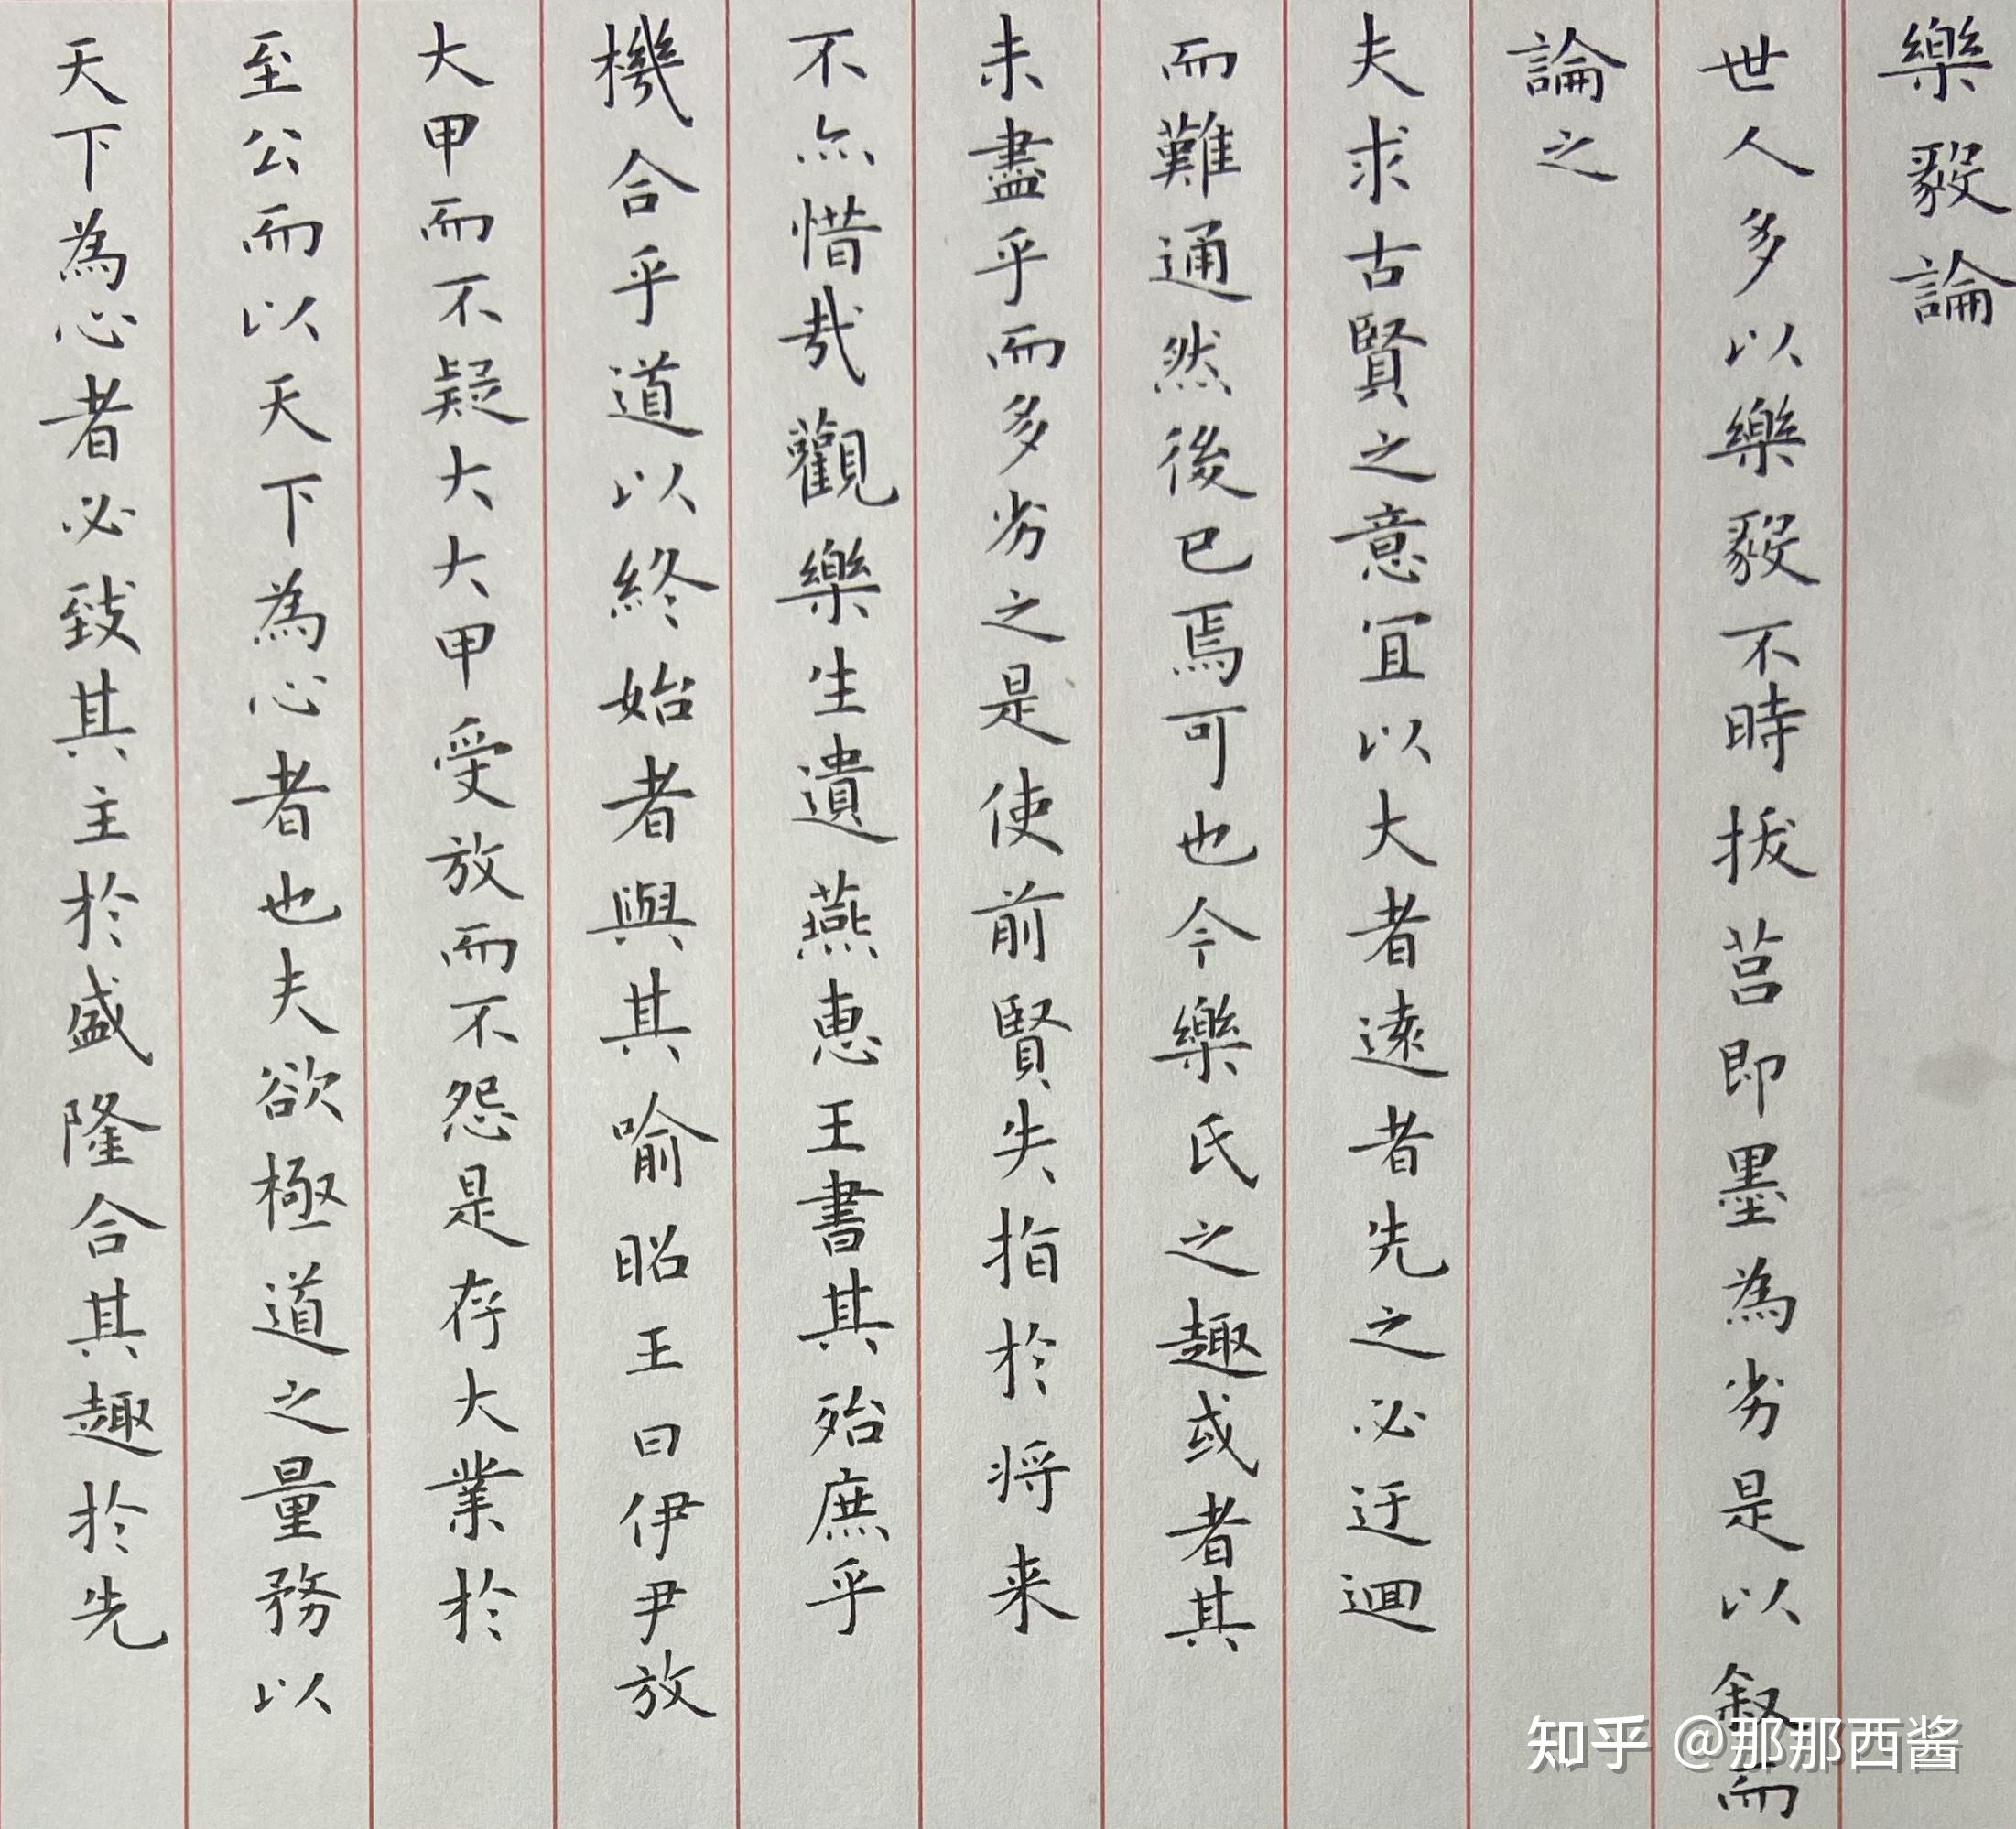 樂毅論
世人多以樂毅不時拔莒即墨為劣是以叙而
論之
夫求古賢之意宜以大者遠者先之必迂迴
而難通然後已焉可也今樂氏之趣或者其
未盡乎而多劣之是使前賢失指於将来
不亦惜哉觀樂生遺燕惠王書其殆庶乎
機合乎道以終始者與其喻昭王曰伊尹放
大甲而不疑大大甲受放而不怨是存大業於
至公而以天下為心者也夫欲極道之量務以
天下為心者必致其主於盛隆合其趣於先
知乎 @那那西酱